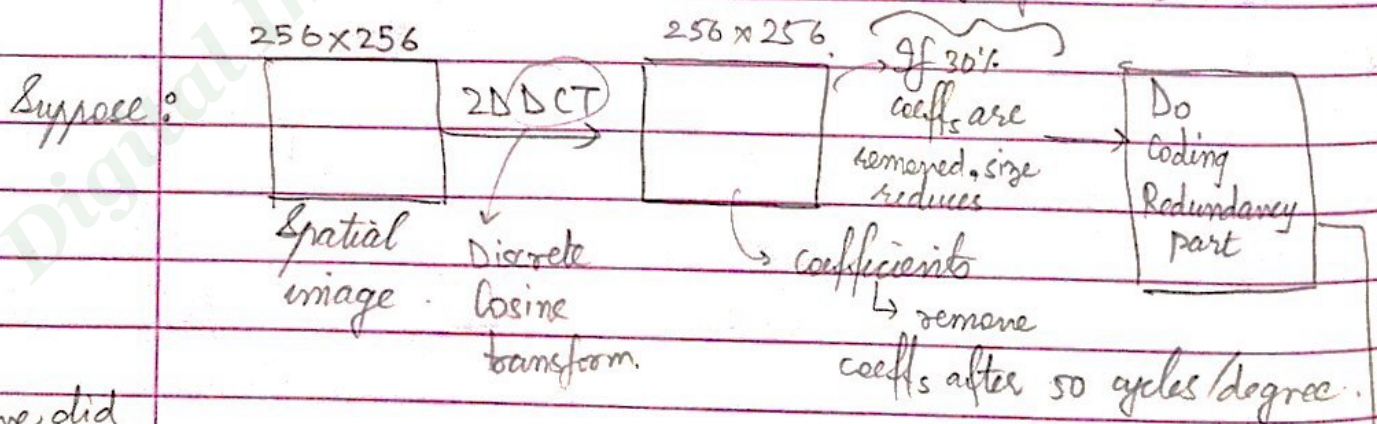 256×256
256×256
Suppose :
2D DCT
If 30%
coeffs are
removed, size
reduces
Do
Coding
Redundancy
part
Spatial
image.
Discrete
Cosine
transform.
coefficients
↳ remove
coeffs after 50 cycles/degree.
did
Digital